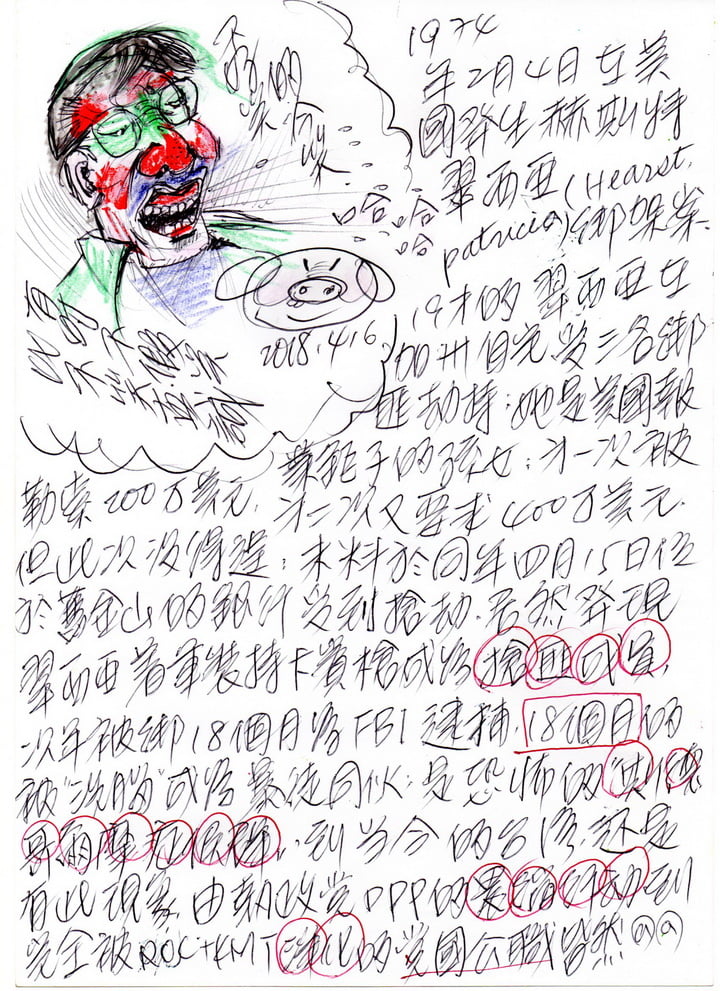 1974
年2月4日在美
國發生赫斯特
翠西亞(Hearst,
patricia)綁架案.
19才的翠西亞在
加州自宅受三名綁
匪劫持;她是美國報
業鉅子的孫女;才一次被
勒索200万美元,才二次又要求400万美元.
但此次沒得逞;未料於同年四月15日位
於舊金山的銀行受到搶劫.居然發現
翠西亞着軍裝持卡賓槍成為搶匪成員,
次年被綁18個月為FBI逮捕.18個月的
被"洗腦"成為暴徒同伙;是恐怖的
症候群,到當今的台灣,还是
有此現象.由執政党DPP的到
完全被ROC+KMT的党國公職皆然
哈哈
哈
2018.4.6